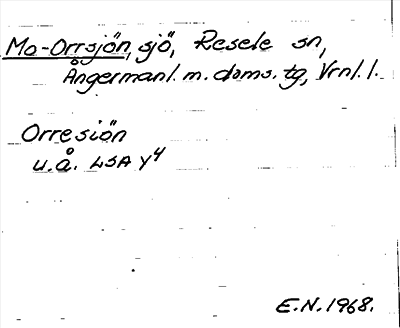 Mo-Orrsjön, sjö, Resele sn,
Ångermanl. m. doms. tg, Vrnl. l.
Orresiön
u.å. LSA Y4
E.N. 1968.